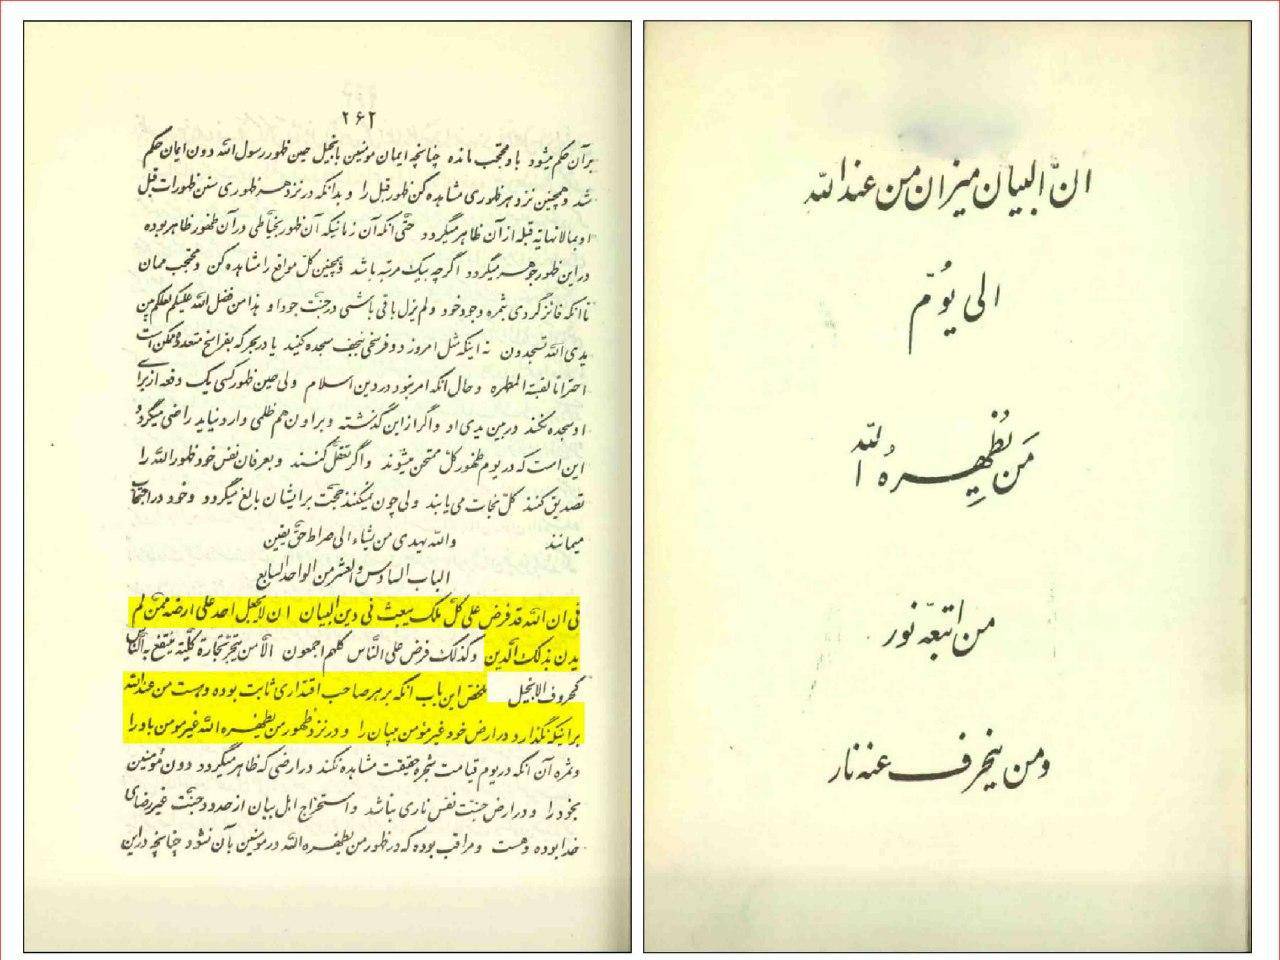 انّ البیان میزان من عند الله
الی یَوُمّ
مَن یُظهِرهُ الله
من اتبعه نور
ومن ینحرف عنه نار
۲۶۲
برآن حکم میشود باو محتجب مانده چنانچه ایمان مومنین بانجیل حین ظهور رسول الله دون ایمان حکم
شد و همچنین نزد هر ظهوری مشاهده کن ظهور قبل را و بدانکه در نزد هر ظهوری سنن ظهورات قبل
او بمالانهایه قبله از آن ظاهر میگردد حتّی آنکه آن زمانیکه آن ظهور بخیاطی در آن ظهور ظاهر بوده
در این ظهور جوهر میگردد اگرچه بیک مرتبه باشد و همچنین کلّ مواقع را مشاهده کن و محتجب ممان
تا آنکه فائز گردی بثمره وجود خود و لم یزل باقی باشی در جنّت جود او و هذا من فضل الله علیکم لعلکم بین
یدی الله تسجدون نه اینکه مثل امروز دو فرسخی نجف سجده کنید یا در بحر که بفراسخ متعدده ممکن است
احتراما لقبته المطهره و حال آنکه امر نبود در دین اسلام ولی حین ظهور کسی یک دفعه از برای
او سجده نکند در بین یدی او و اگر از این گذشته و بر او ن هم ظلمی وارد نیاید راضی میگردد
این است که در یوم ظهور کلّ ممتحن میشوند و اگر تعقّل کنند و بعرفان نفس خود ظهور الله را
تصدیق کنند کلّ نجات می‌یابند ولی چون نمیکنند حجّت بر ایشان بالغ میگردد و خود در احتجاب
میمانند والله یهدی من یشاء الی صراط حقّ یقین
الباب السادس والعشر من الواحد السابع
فی ان الله قد فرض علی کلّ ملک یبعث فی دین البیان ان لا یجعل احد علی ارضه ممّن لم
یدن بذلک الدّین وکذلک فرض علی النّاس کلهم اجمعون الّا من یتجر تجارة کلّیّة ینتفع به النّاس
کحروف الانجیل ملخص این باب آنکه بر هر صاحب اقتداری ثابت بوده وهست من عند الله
براینکه نگذارد در ارض خود غیر مؤمن ببیان را و در نزد ظهور من یظهره الله غیر مومن باو را
وثمره آن آنکه در یوم قیامت شجره حقیقت مشاهده نکند در ارضی که ظاهر میگردد دون مؤمنین
بخود را و در ارض جنّت نفس ناری نباشد و استخراج اهل بیان از حدود جنّت غیر رضای
خدا بوده وهست و مراقب بوده که در ظهور من یظهره الله در مومنین بآن نشود چنانچه در این